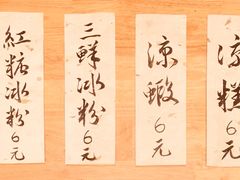 紅糖冰粉6元
三鮮冰粉6元
涼蝦6元
涼糕6元